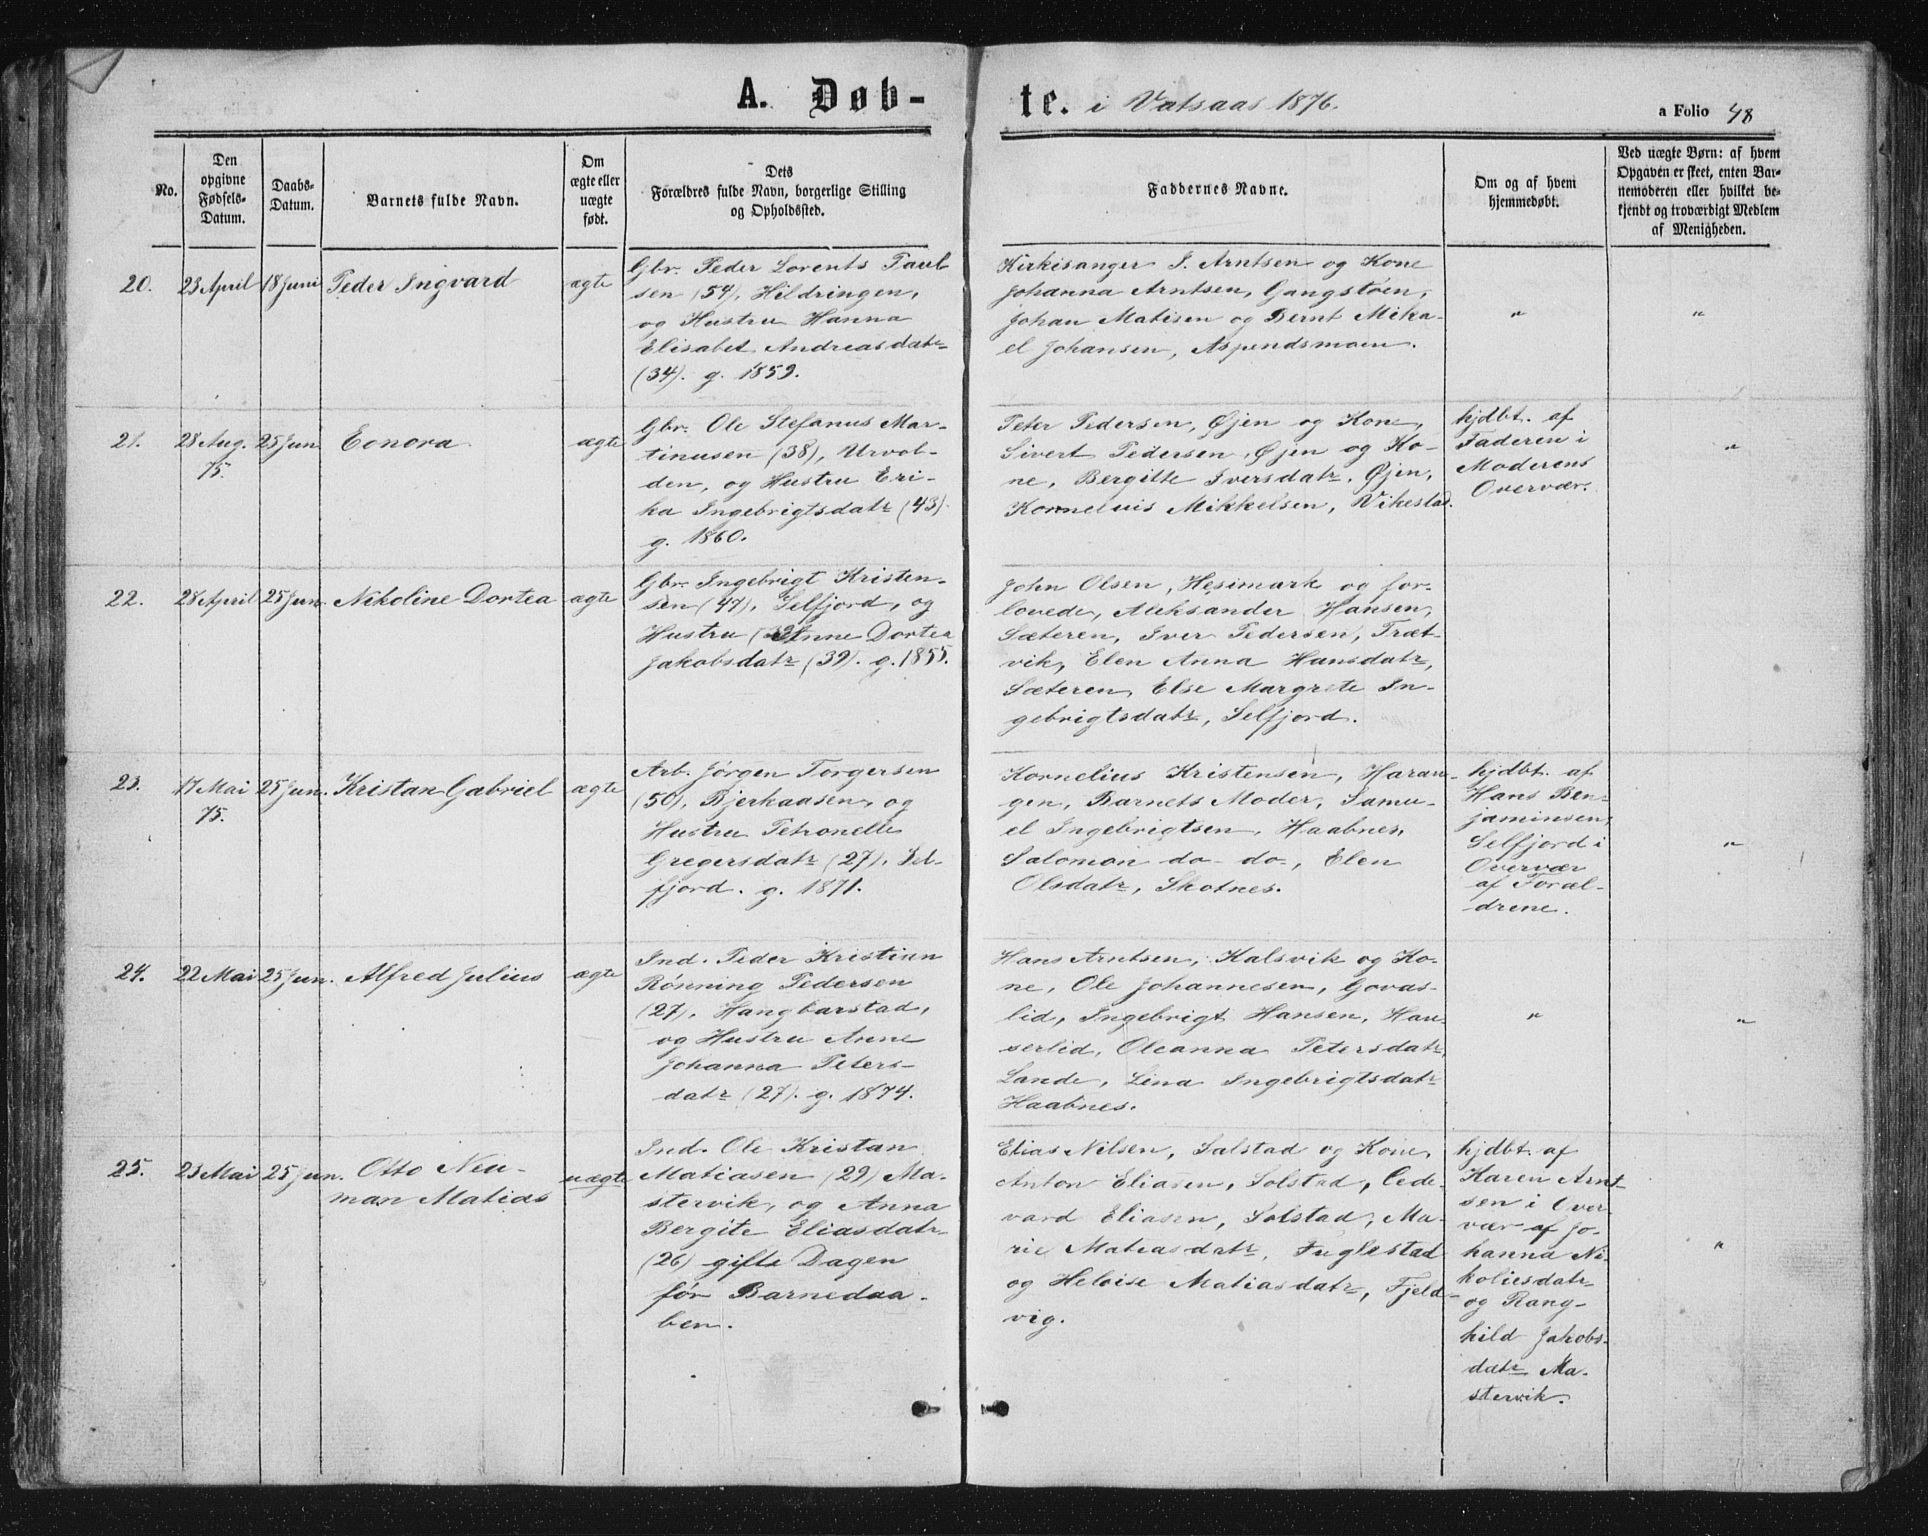 A. Døb-
te. i Vatsaas 1876.
a Folio 48
No.
Den
opgivne
Fødsels-
Datum.
Daabs-
Datum.
Barnets fulde Navn.
Om
ægte eller
uægte
født.
Dets
Forældres fulde Navn, borgerlige Stilling
og Opholdssted.
Faddernes Navne.
Om og af hvem
hjemmedøbt.
Ved uægte Børn: af hvem
Opgaven er skeet, enten Bar-
nemoderen eller hvilket be-
kjendt og troværdigt Medlem
af Menigheden.
20. 23 April 18 Juni Peder Ingvard ægte
Gbr. Peder Lorents Paul
sen (54), Hildringen,
og Hustru Hanna
Elisabet Andreasdatr
(34). g. 1859.
Kirkesanger J. Arntsen og Kone
Johanna Arntsen, Gangstøen,
Johan Matisen og Bernt Mika-
el Johansen, Aspendsmoen.
"
"
21. 28 Aug. 25 Jun. Eonora ægte
75.
Gbr. Ole Stefanus Mar-
tinusen (38), Urvol-
den, og Hustru Eri-
ka Ingebrigtsdatr (43).
g. 1860.
Peter Pedersen, Øjen og Kone,
Sivert Pedersen, Øjen og Ko-
ne, Bergitte Iversdatr, Øjen,
Kornelius Mikkelsen, Vikestad.
hjdbt. af
Faderen i
Moderens
Overvær.
"
22. 28 April 25 Jun. Nikoline Dortea ægte
Gbr. Ingebrigt Kristen-
sen (47), Selfjord, og
Hustru Anne Dortea
Jakobsdatr (39). g. 1855.
John Olsen, Hesimark og for-
lovede, Aleksander Hansen,
Sæteren, Iver Pedersen, Træt-
vik, Elen Anna Hansdatr,
Sæteren, Else Margrete In-
gebrigtsdatr, Selfjord.
23. 17 Mai 25 Jun. Kristan Gabriel ægte
75.
Arb. Jørgen Torgersen
(50), Bjerkaasen, og
Hustru Petronelle
Gregersdatr (27), Sel-
fjord. g. 1871.
Kornelius Kristensen, Haran-
gen, Barnets Moder, Samu-
el Ingebrigtsen, Haabnes,
Salomon do- do-, Elen
Olsdatr, Skotnes.
hjdbt. af
Hans Ben-
jaminsen,
Selfjord i
Overvær
af Foræl-
drene.
"
24. 22 Mai 25 Jun. Alfred Julius ægte
Ind. Peder Kristian
Rønning Pedersen
(27), Hangbarstad,
og Hustru Anne
Johanna Peters-
datr (27). g. 1874.
Hans Arntsen, Kalsvik og Ko-
ne, Ole Johannesen, Govas-
lid, Ingebrigt Hansen, Hau-
serlid, Oleanna Petersdatr,
Lande, Lina Ingebrigtsdatr
Haabnes.
"
"
25. 23 Mai 25 Jun. Otto Neu-
man Matias uægte
Ind. Ole Kristan
Matiasen (29) Ma-
stervik, og Anna
Bergite Eliasdatr
(26) gifte Dagen
før Barnedaa-
ben.
Elias Nilsen, Salstad og Kone,
Anton Eliasen, Solstad, Ede-
vard Eliasen, Solstad, Ma-
rie Matiasdatr, Fuglestad
og Heloise Matiasdatr, Fjeld-
vig.
hjdbt. af
Karen Arnt-
sen i Over-
vær af Jo-
hanna Ni-
koliesdatr
og Rang-
hild Jakobs-
datr Ma-
stervik.
"